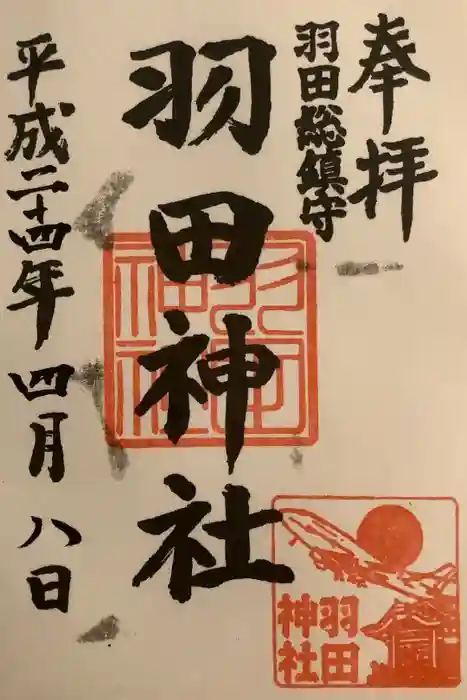 奉拝
羽田総鎮守
羽田神社
平成二十四年四月八日
羽田神社
羽田
神社